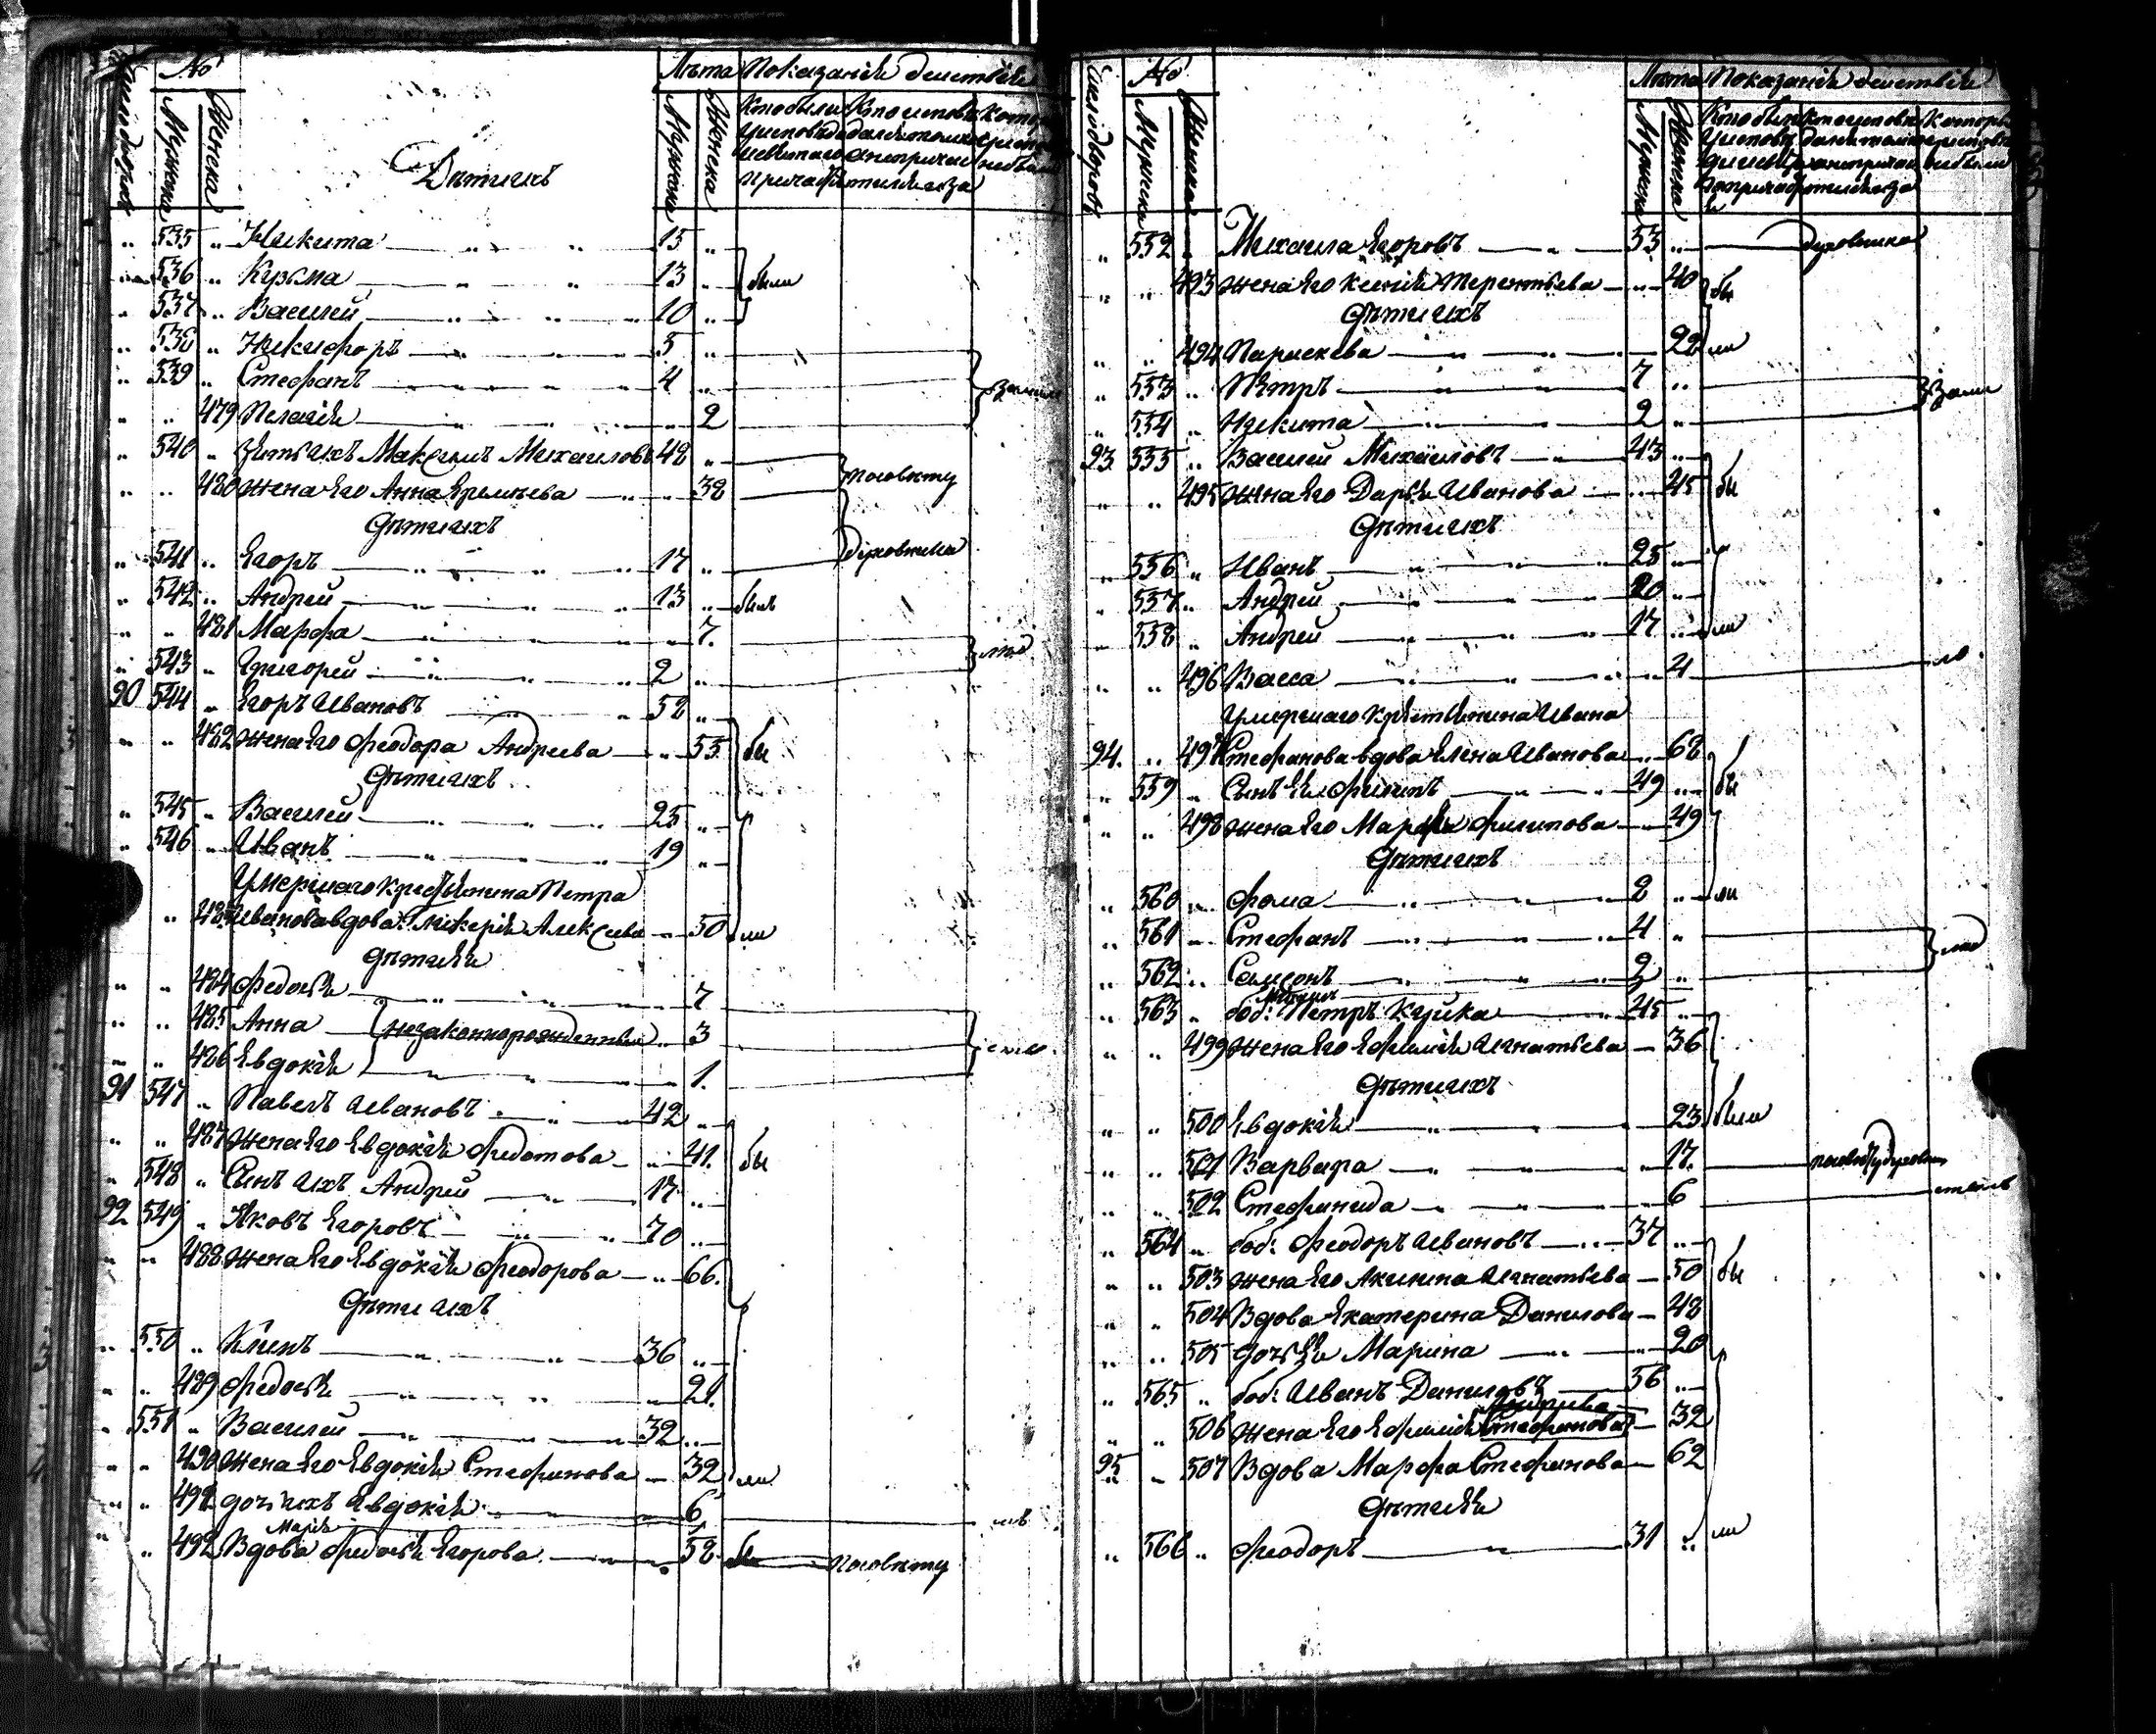 № Лѣта Показаніе действія
Число дворовъ Мужеска Женска Мужеска Женска
Дѣти ихъ
535 Никита 15
536 Кузьма 13 были
537 Василей 10
538 Никифоръ 5
539 Стефанъ 4
479 Пелагія 2
540 Зять ихъ Максимъ Михаиловъ 42
480 жена Его Анна Еремѣева 38 посовѣту
дѣти ихъ
541 Егоръ 17 духовника
542 Андрей 13 былъ
481 Марфа 7.
543 Григорей 2
90 544 Егоръ Ивановъ 52
482 жена Его Феодора Андреева 55 бы
дѣти ихъ
545 Василей 25
546 Иванъ 19
Умершаго крестьянина Петра
483 Иванова вдова Гликерія Алексеева 50 ли
дѣти Ея
484 Федосья 7
485 Анна незаконнорожденныя 3
486 Евдокія 1.
91 547 Павелъ Ивановъ 42
487 жена Его Евдокія Федотова 41. бы
548 Сынъ ихъ Андрей 17
92 549 Яковъ Егоровъ 70
488 жена Его Евдокія Феодорова 66.
дѣти ихъ
550 Климъ 36
489 Федосья 21.
551 Василей 32
490 жена Его Евдокія Стефанова 32 ли
491 дочь ихъ Евдокія 6
Марія
492 Вдова Федосья Егорова 52 посовѣту
№ Лѣта Показаніе действія
Число дворовъ Мужеска Женска Мужеска Женска
552 Михаила Егоровъ 53 духовника
493 жена Его Ксенія Терентьева 40 бы
дѣти ихъ
494 Параскева 22 ли
553 Петръ 7
554 Никита 2
93. 555 Василей Михаиловъ 43
495 жена Его Дарья Иванова 45 бы
дѣти ихъ
556 Иванъ 25
557 Андрей 20
558 Андрей 17 ли
496 Васса 4
Умершаго крестьянина Ивана
94. 497 Стефанова вдова Елена Иванова 68
559 Сынъ Ея Филипъ 49 бы
498 жена Его Марфа Филипова 49
дѣти ихъ
560 Фома 8 ли
561 Стефанъ 4
562 Самсонъ 2
563 боб: Петръ Куйка 45
499 жена Его Ефимія Игнатьева 36
дѣти ихъ
500 Евдокія 23 были
501 Варвара 17.
502 Стефанида 6
564 боб: Феодоръ Ивановъ 37
503 жена Его Акилина Игнатьева 50 бы
504 Вдова Екатерина Данилова 48
505 дочь Ея Марина 20
565 боб: Иванъ Даниловъ 56
506 жена Его Ефимія Стефанова 32
95 507 Вдова Марфа Стефанова 62
дѣти Ея
566 Феодоръ 31 ли